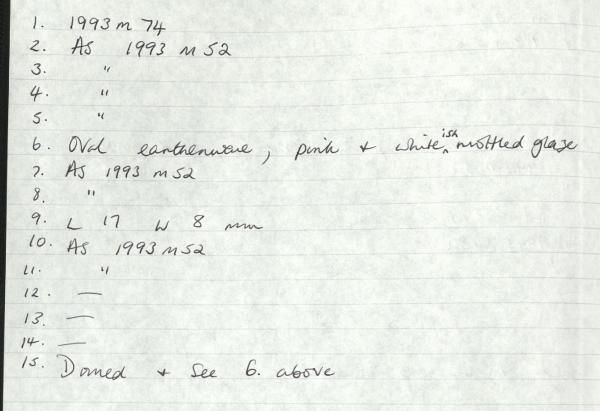 1. 1993 M 74
2. As 1993 M 52
3. "
4. "
5. "
6. Oval earthenware, pink + whiteish mottled glaze
7. As 1993 M 52
8. "
9. L 17 W 8 mm
10. As 1993 M 52
11. "
12. —
13. —
14. —
15. Domed + See 6. above